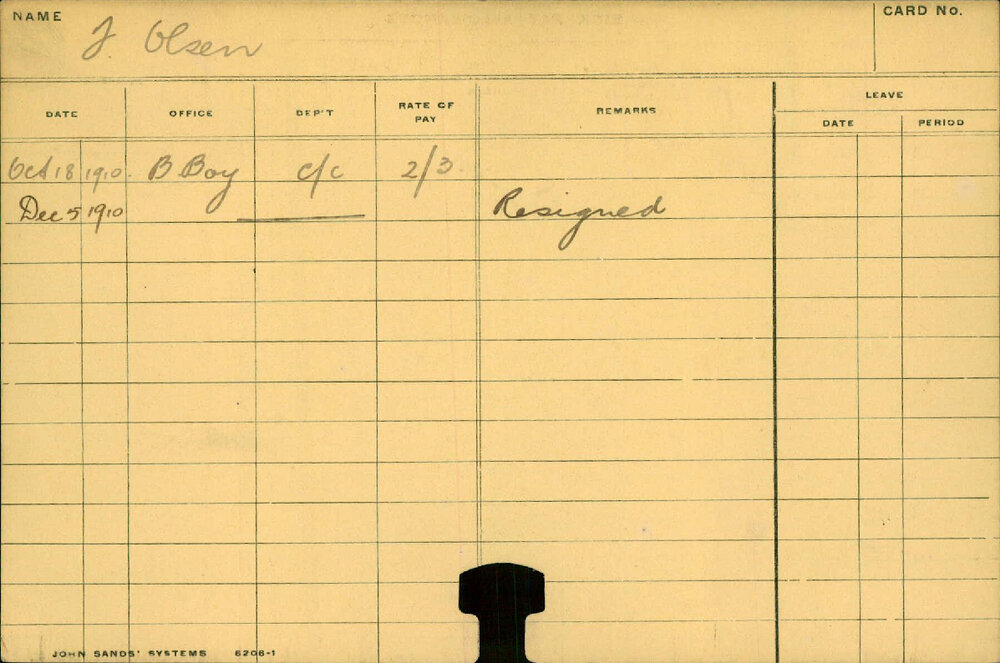 NAME J Olsen CARD No.
DATE OFFICE DEP'T RATE OF PAY REMARKS LEAVE
DATE PERIOD
Oct 18 1910. B Boy c/c 2/3
Dec 5 1910 Resigned
JOHN SANDS' SYSTEMS 6206-1